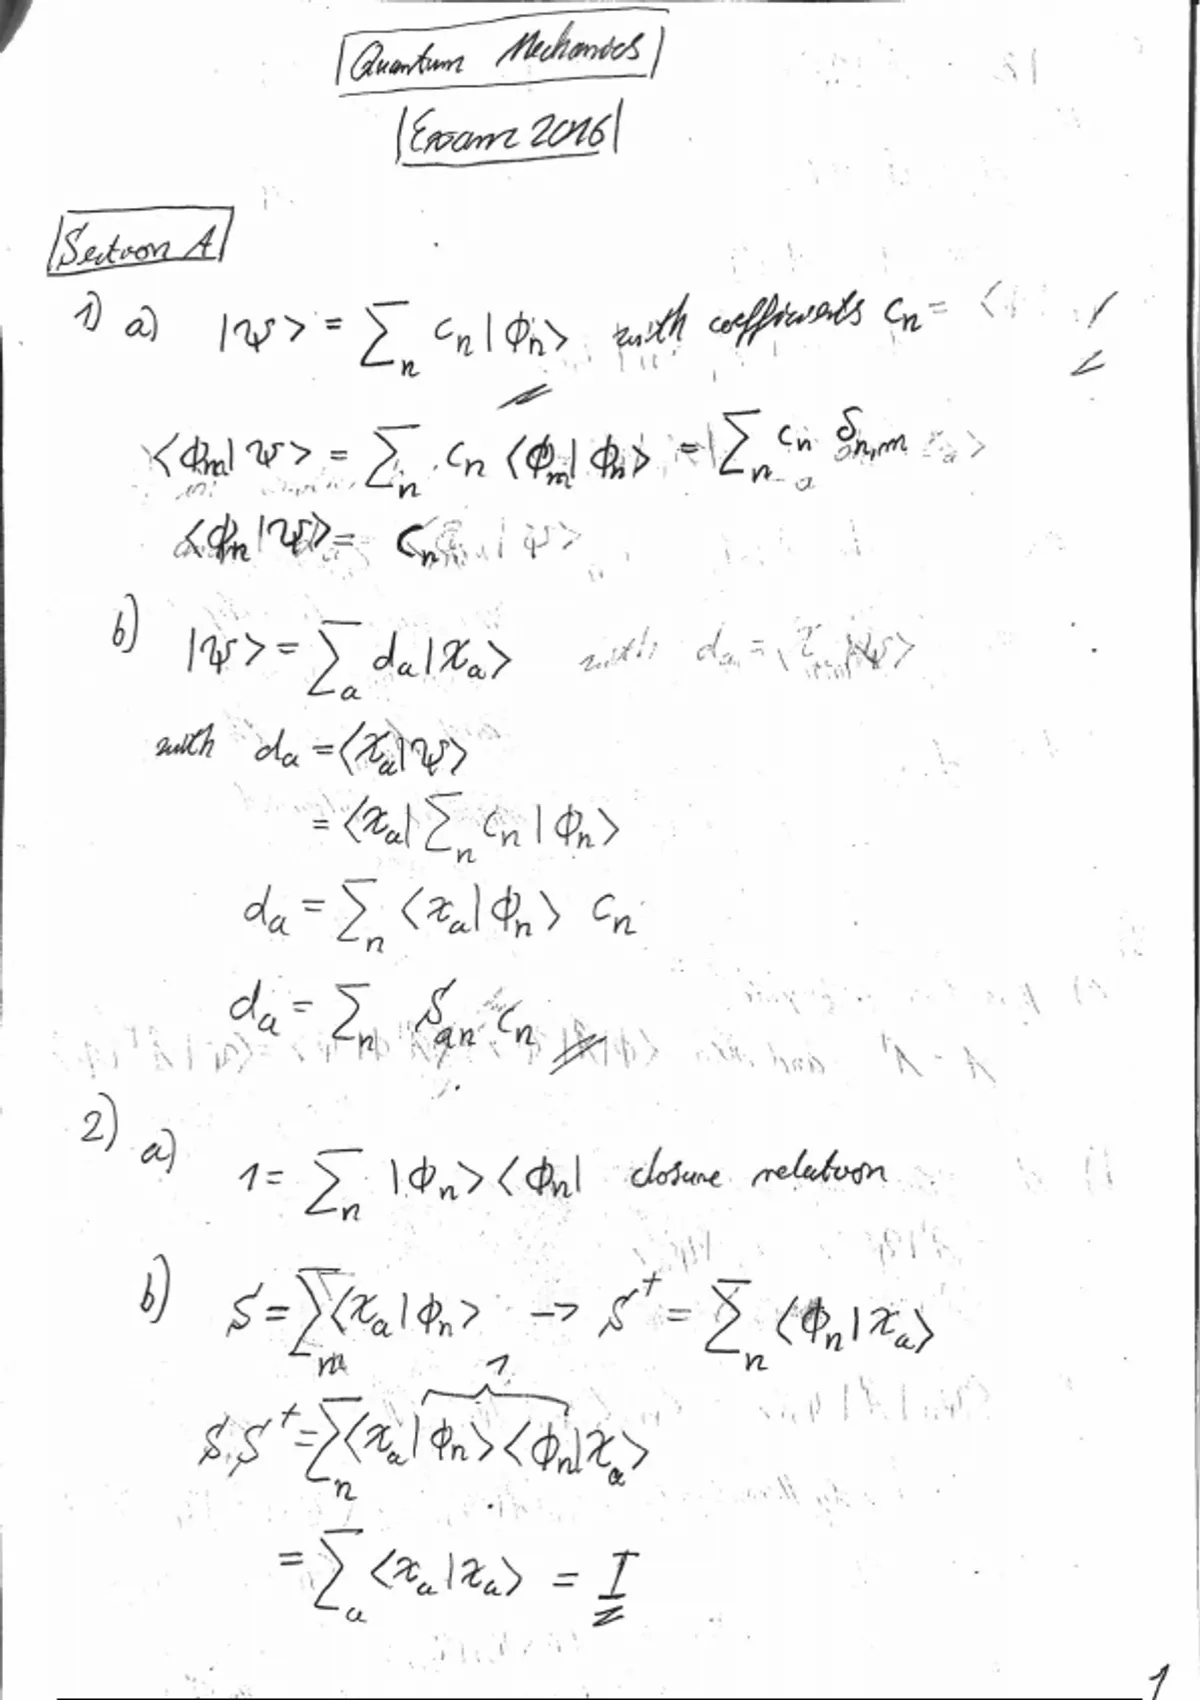 Quantum Mechanics
Exam 2016
Section A
1) a) |ψ> = ∑_n c_n |ϕ_n> with coefficients c_n = <
<ϕ_m|ψ> = ∑_n c_n <ϕ_m|ϕ_n> = ∑_n c_n δ_n,m
<ϕ_n|ψ> = c_n
b) |ψ> = ∑_a d_a |χ_a> with d_a = |ψ>
with d_a = <χ_a|ψ>
= <χ_a| ∑_n c_n |ϕ_n>
d_a = ∑_n <χ_a|ϕ_n> c_n
d_a = ∑_n S_an c_n
2) a) 1 = ∑_n |ϕ_n><ϕ_n| closure relation
b) S = ∑_n <χ_a|ϕ_n> -> S^† = ∑_n <ϕ_n|χ_a>
1
S.S^† = ∑_n <χ_a|ϕ_n><ϕ_n|χ_a>
= ∑_a <χ_a|χ_a> = I
1